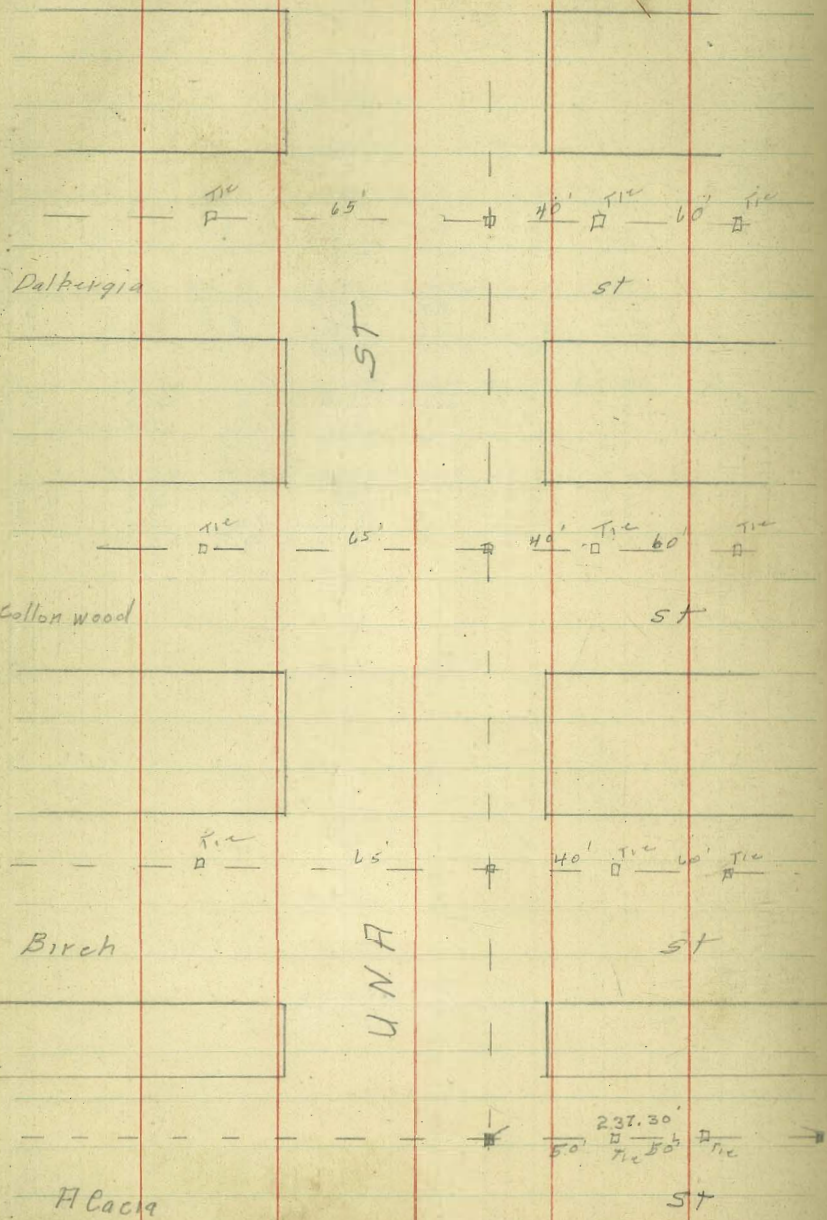 Tie 65' 40' Tie 60' Tie
Dalbergia st
ST
Tie 65' 40' Tie 60' Tie
Cotton wood st
Tie 65' 40' Tie 60' Tie
Birch st
UNA
237.30'
50' Tie 50' Tie
Acacia st